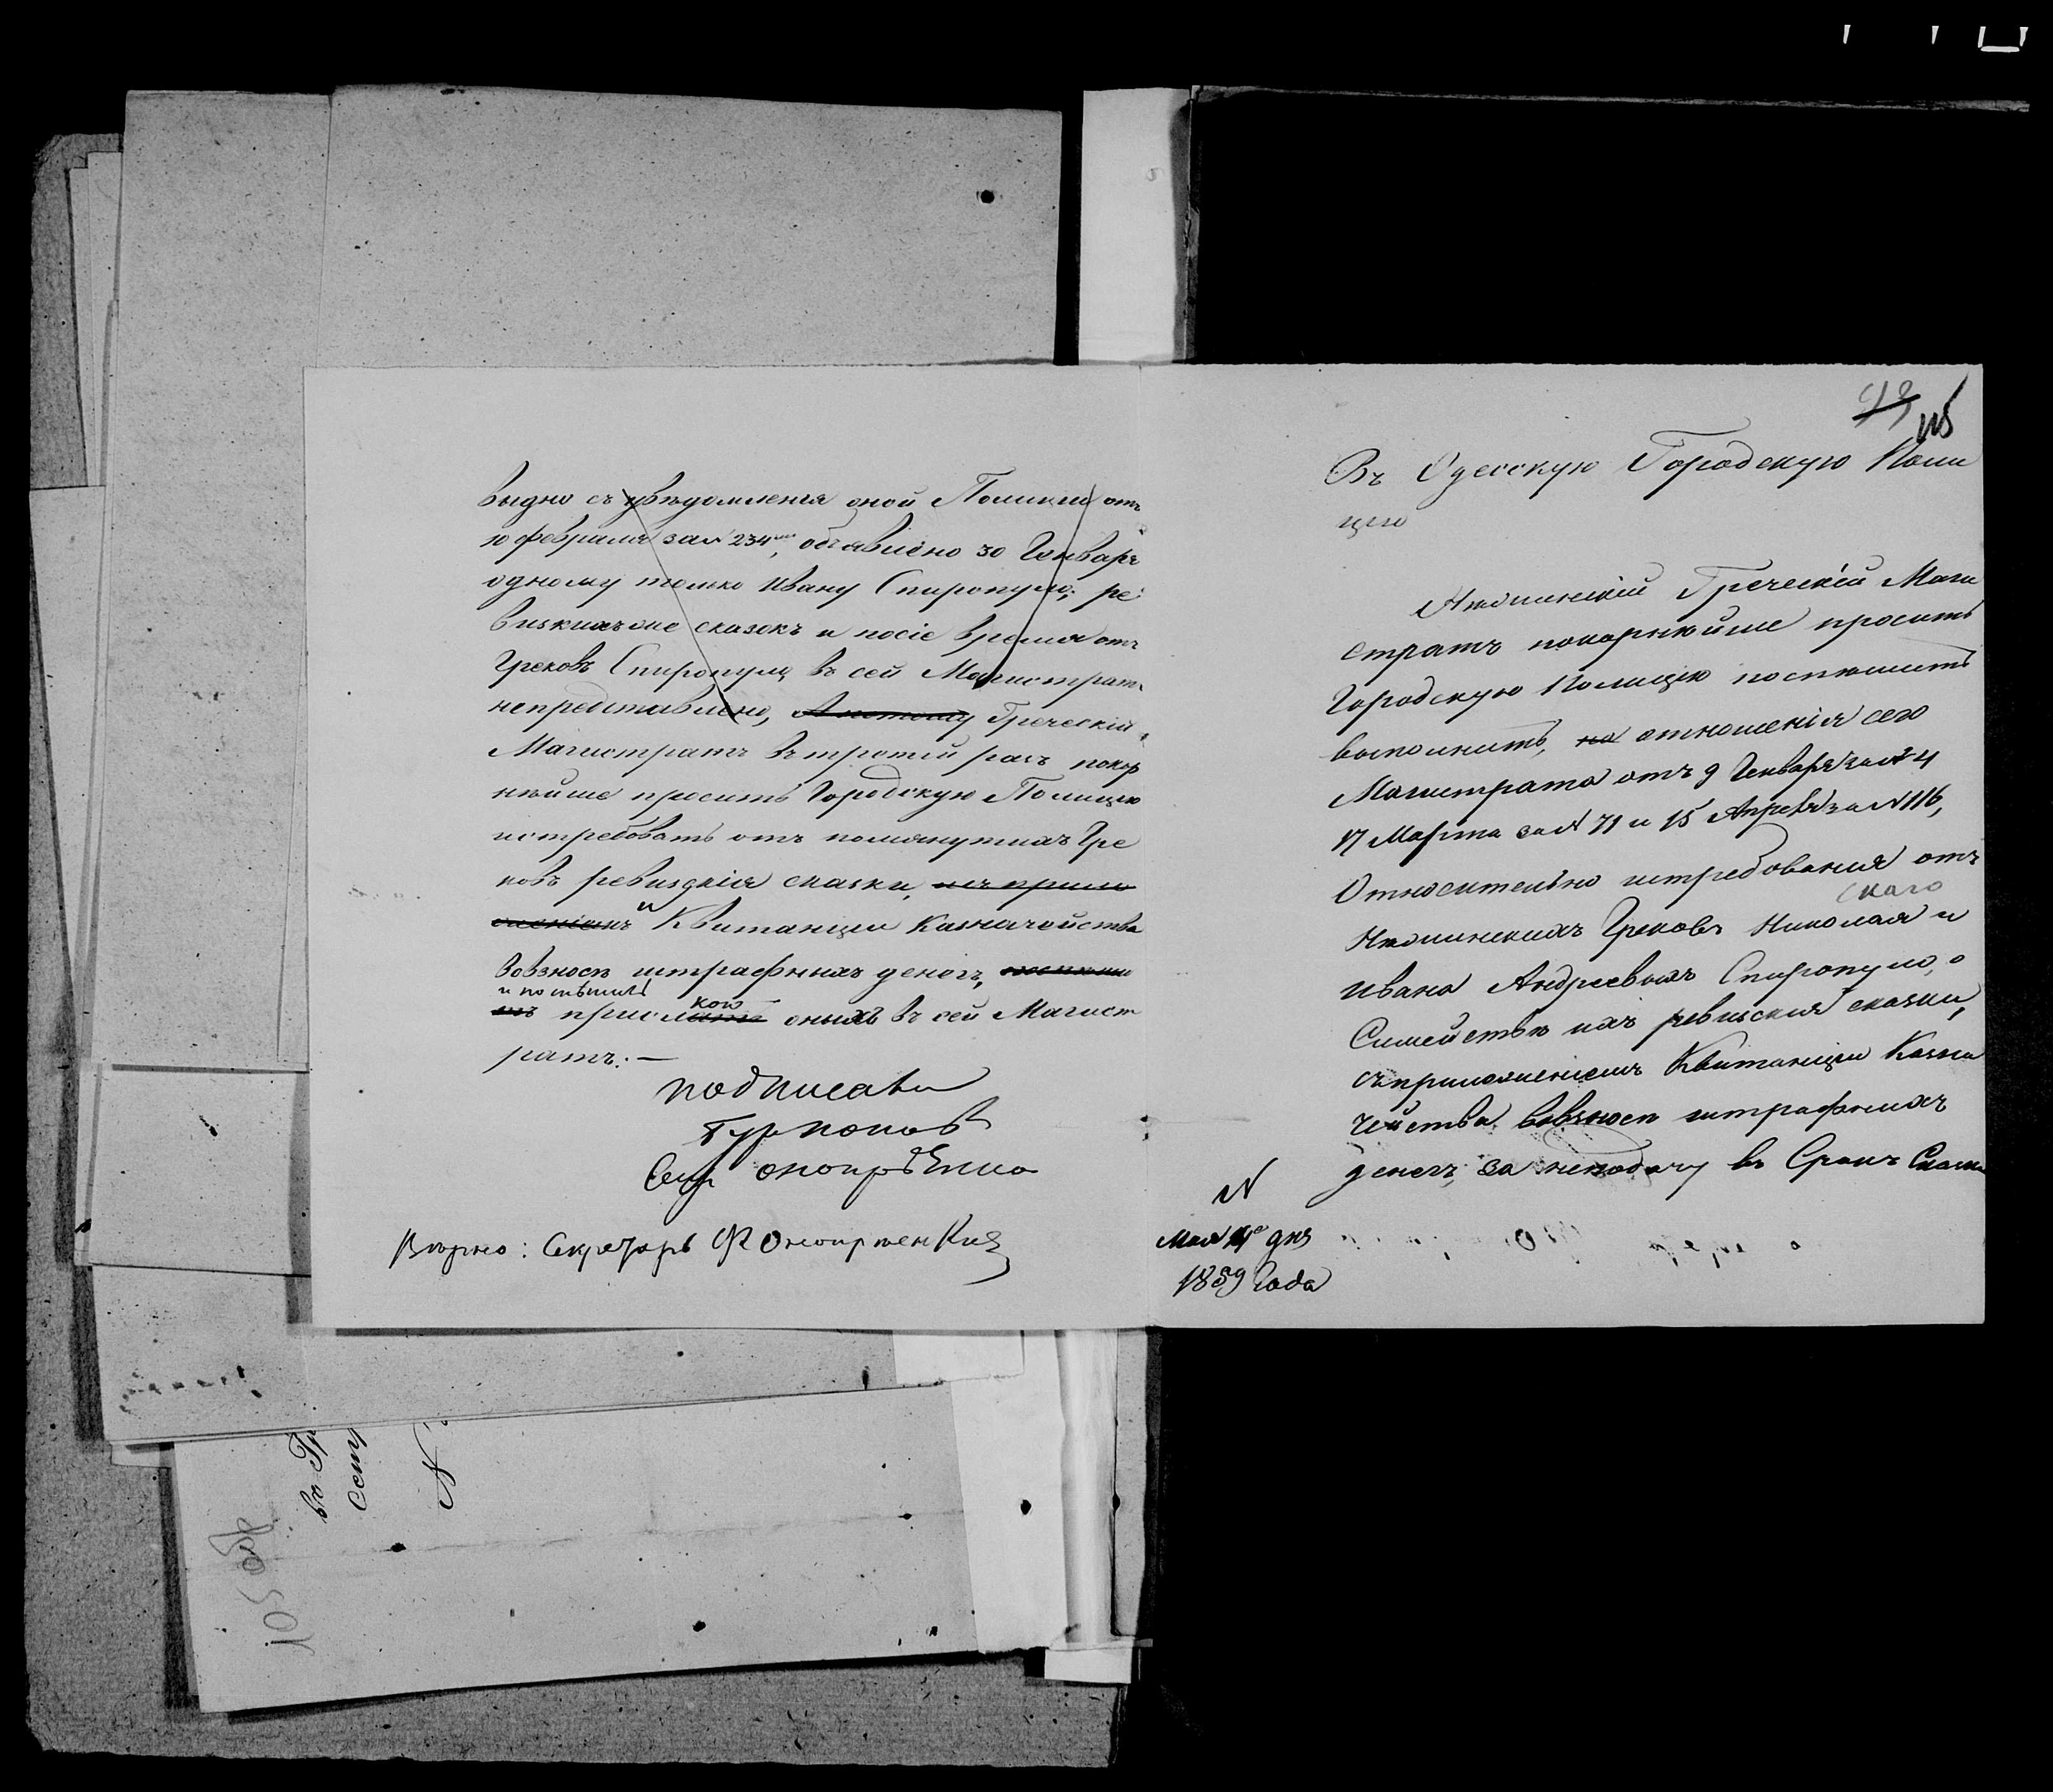 видно съ увѣдомленія оной Полиціи отъ
10 февраля за N 234мъ, объявлено 30 Генваря
одному только Ивану Спиропуло; ре
визкихъ же сказокъ и посіе время отъ
Грековъ Спиропуло въ сей Магистратъ
непредставлено, А потому Греческій
Магистратъ въ третій разъ покор
нѣйше проситъ Городскую Полицію
истребовать отъ помянутихъ Гре
ковъ ревизскія сказки, съ прило
женіемъ и Квитанціи Казначейства
вовзносѣ штрафныхъ денегъ,
и поспѣшить
присылкою оныхъ въ сей Магист
ратъ.—
подписали
Секр
Вѣрно: Секретарь
93
115
Въ Одесскую Городскую Поли
цію
Нѣжинскій Греческій Маги
стратъ покорнѣйше проситъ
Городскую Полицію поспѣшить
выполнить, на отношенія сего
Магистрата отъ 9 Генваря за N 4
17 Марта за N 71 и 15 Апреля за N 116,
Относительно истребованія отъ
скаго
Нѣжинскихъ Грековъ Николая и
Ивана Андреевыхъ Спиропуло, о
Симействѣ ихъ ревизскія сказки,
съ приложеніемъ Квитанціи Казна
чейства вовзносѣ штрафныхъ
денегъ, за неподачу въ Срокъ Сказки
N
Мая дня
1859 Года
въ Гр
N
105 обр